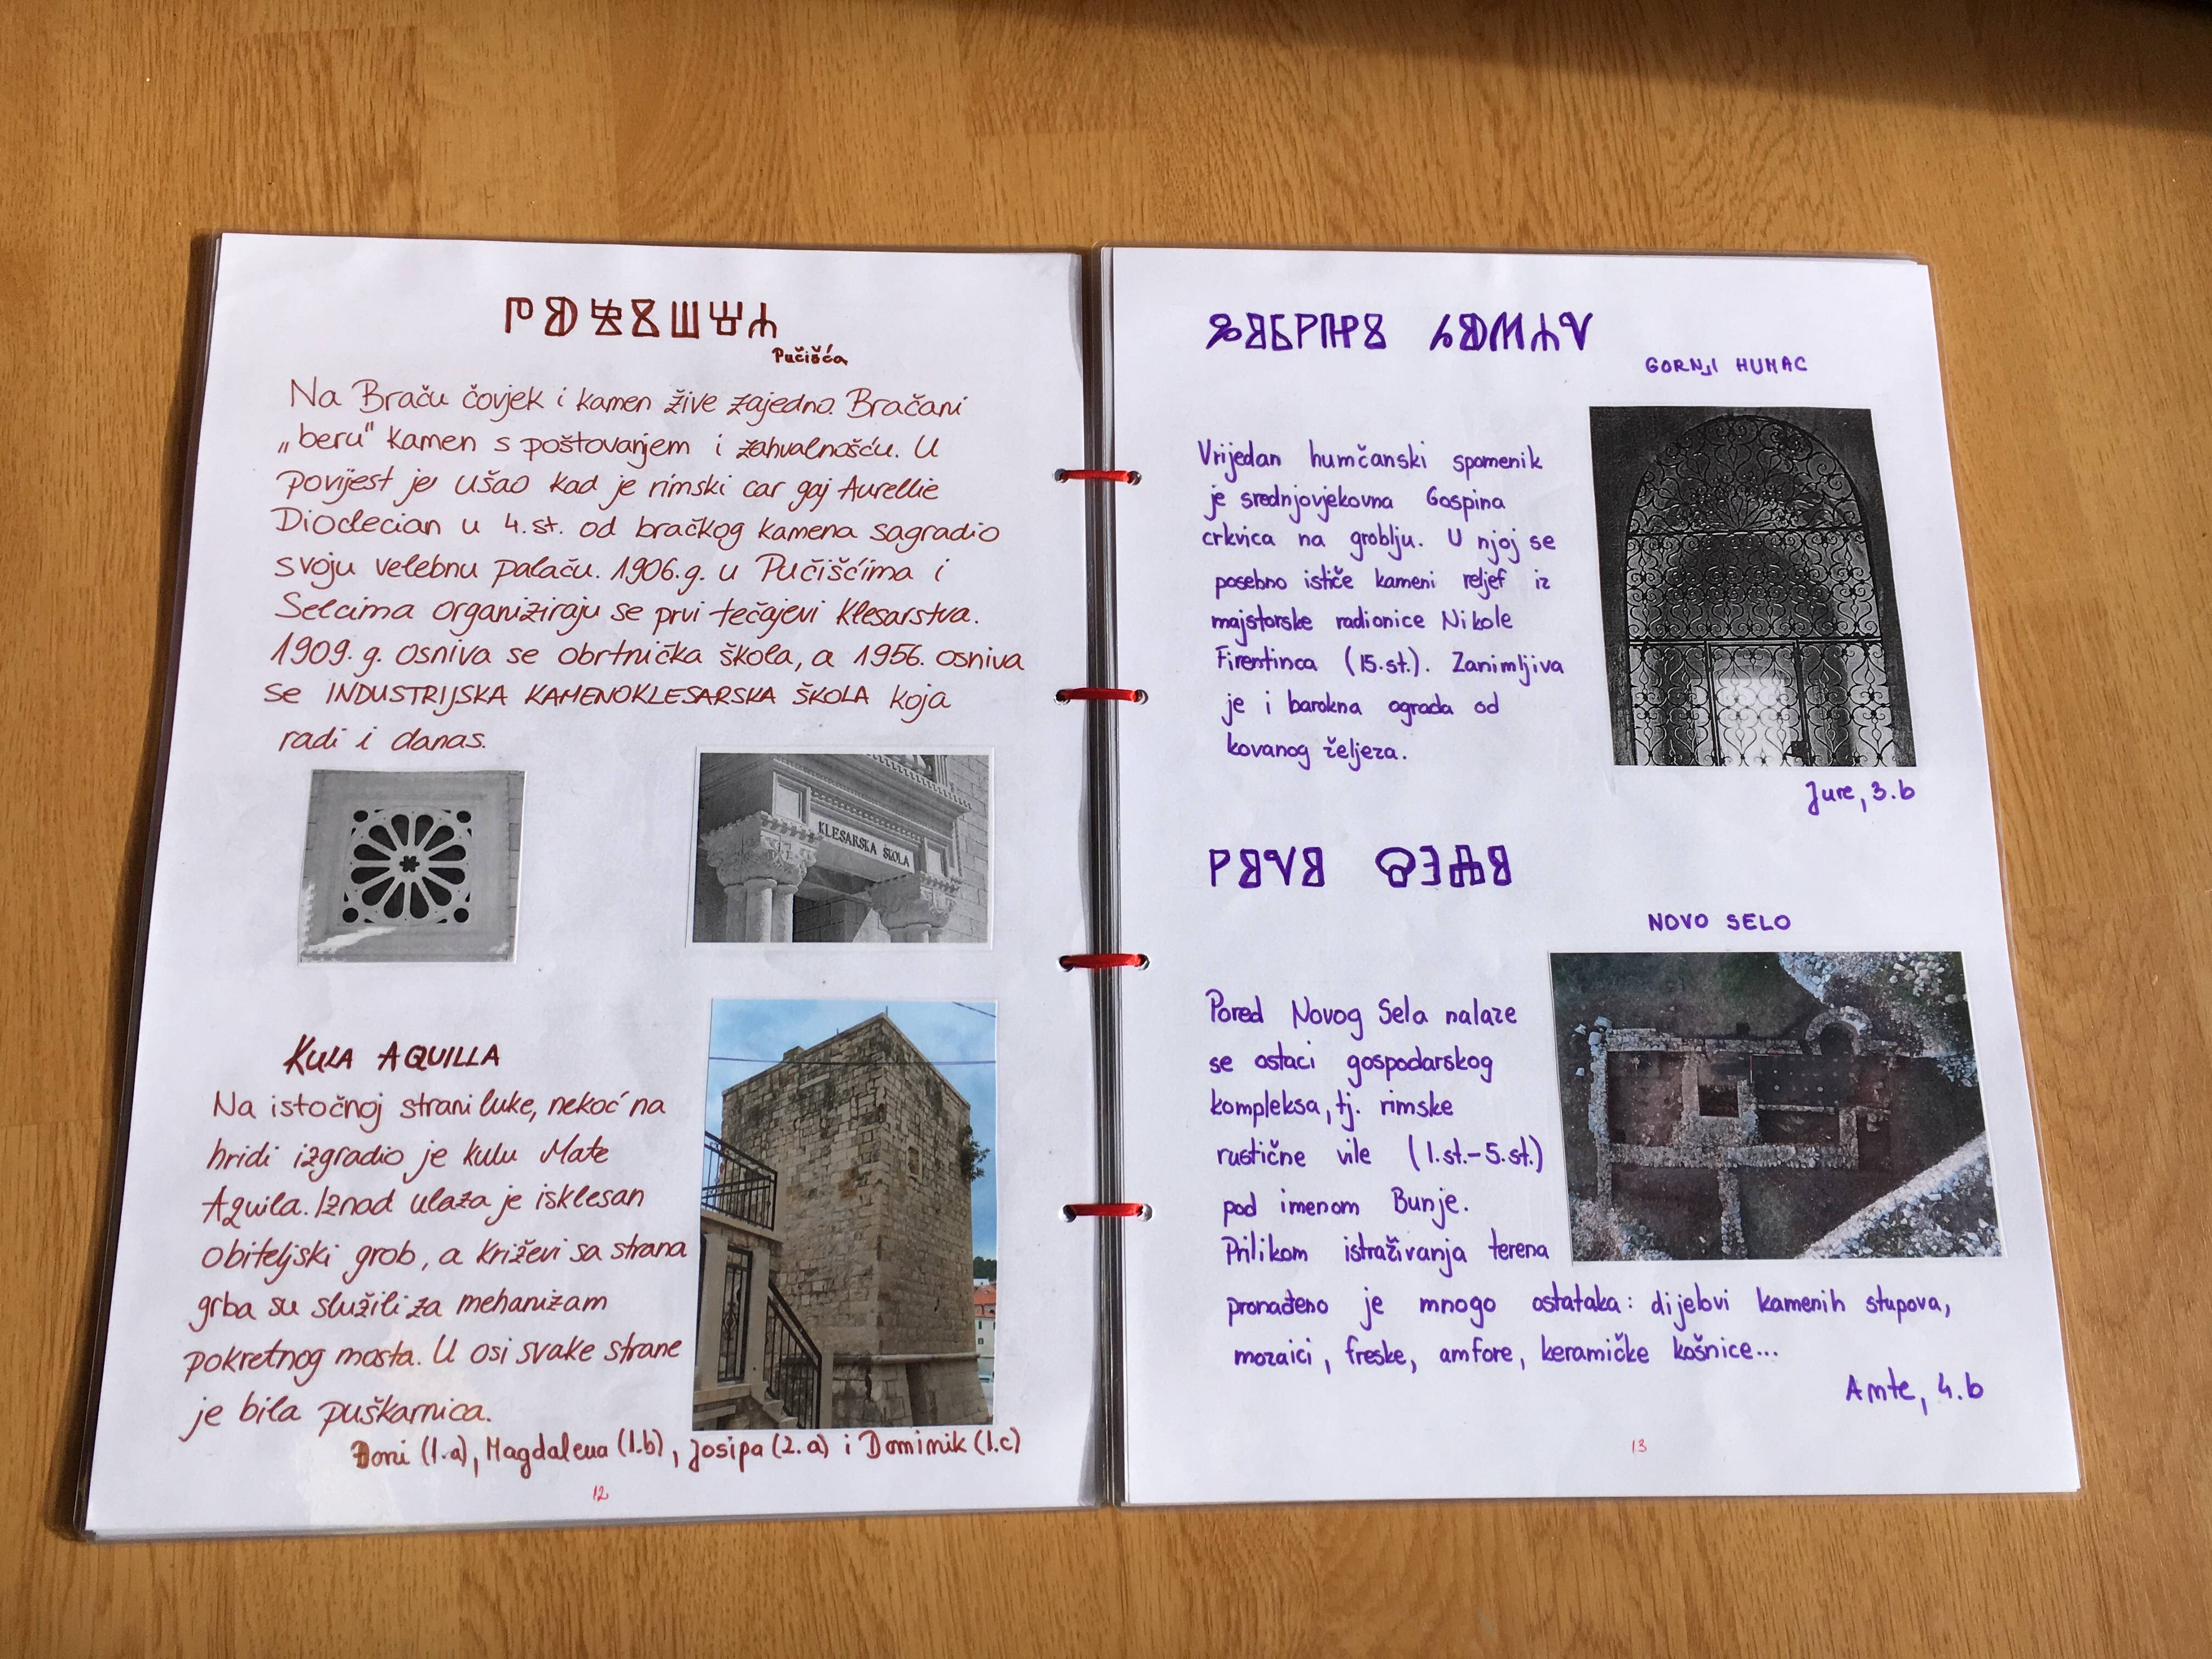 ⰒⰖⰝⰋⰞⰛⰀ
Pučišća
Na Braču čovjek i kamen žive zajedno. Bračani
„beru" kamen s poštovanjem i zahvalnošću. U
povijest je ušao kad je rimski car gaj Aurellie
Dioclecian u 4.st. od bračkog kamena sagradio
svoju velebnu palaču. 1906.g. u Pučišćima i
Selcima organiziraju se prvi tečajevi klesarstva.
1909. g. osniva se obrtnička škola, a 1956. osniva
se INDUSTRIJSKA KAMENOKLESARSKA ŠKOLA koja
radi i danas.
KLESARSKA ŠKOLA
KULA AQUILLA
Na istočnoj strani luke, nekoć na
hridi izgradio je kulu Mate
Aquila. Iznad ulaza je isklesan
obiteljski grob, a križevi sa strana
grba su služili za mehanizam
pokretnog mosta. U osi svake strane
je bila puškarnica.
Doni (1.a), Magdalena (1.b), Josipa (2.a) i Dominik (1.c)
12
ⰃⰑⰓⰐⰌⰋ ⰘⰖⰏⰀⰜ
GORNJI HUMAC
Vrijedan humčanski spomenik
je srednjovjekovna Gospina
crkvica na groblju. U njoj se
posebno ističe kameni reljef iz
majstorske radionice Nikole
Firentinca (15.st.). Zanimljiva
je i barokna ograda od
kovanog željeza.
Jure, 3.b
ⰐⰑⰂⰑ ⰔⰅⰎⰑ
NOVO SELO
Pored Novog Sela nalaze
se ostaci gospodarskog
kompleksa, tj. rimske
rustične vile (1.st.-5.st.)
pod imenom Bunje.
Prilikom istraživanja terena
pronađeno je mnogo ostataka: dijelovi kamenih stupova,
mozaici, freske, amfore, keramičke košnice...
Ante, 4.b
13